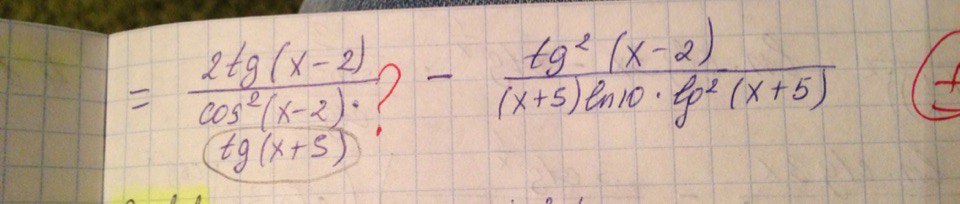 = 2tg(x-2) / cos²(x-2)· ? - tg²(x-2) / (x+5)ln10·lg²(x+5)
tg(x+5)